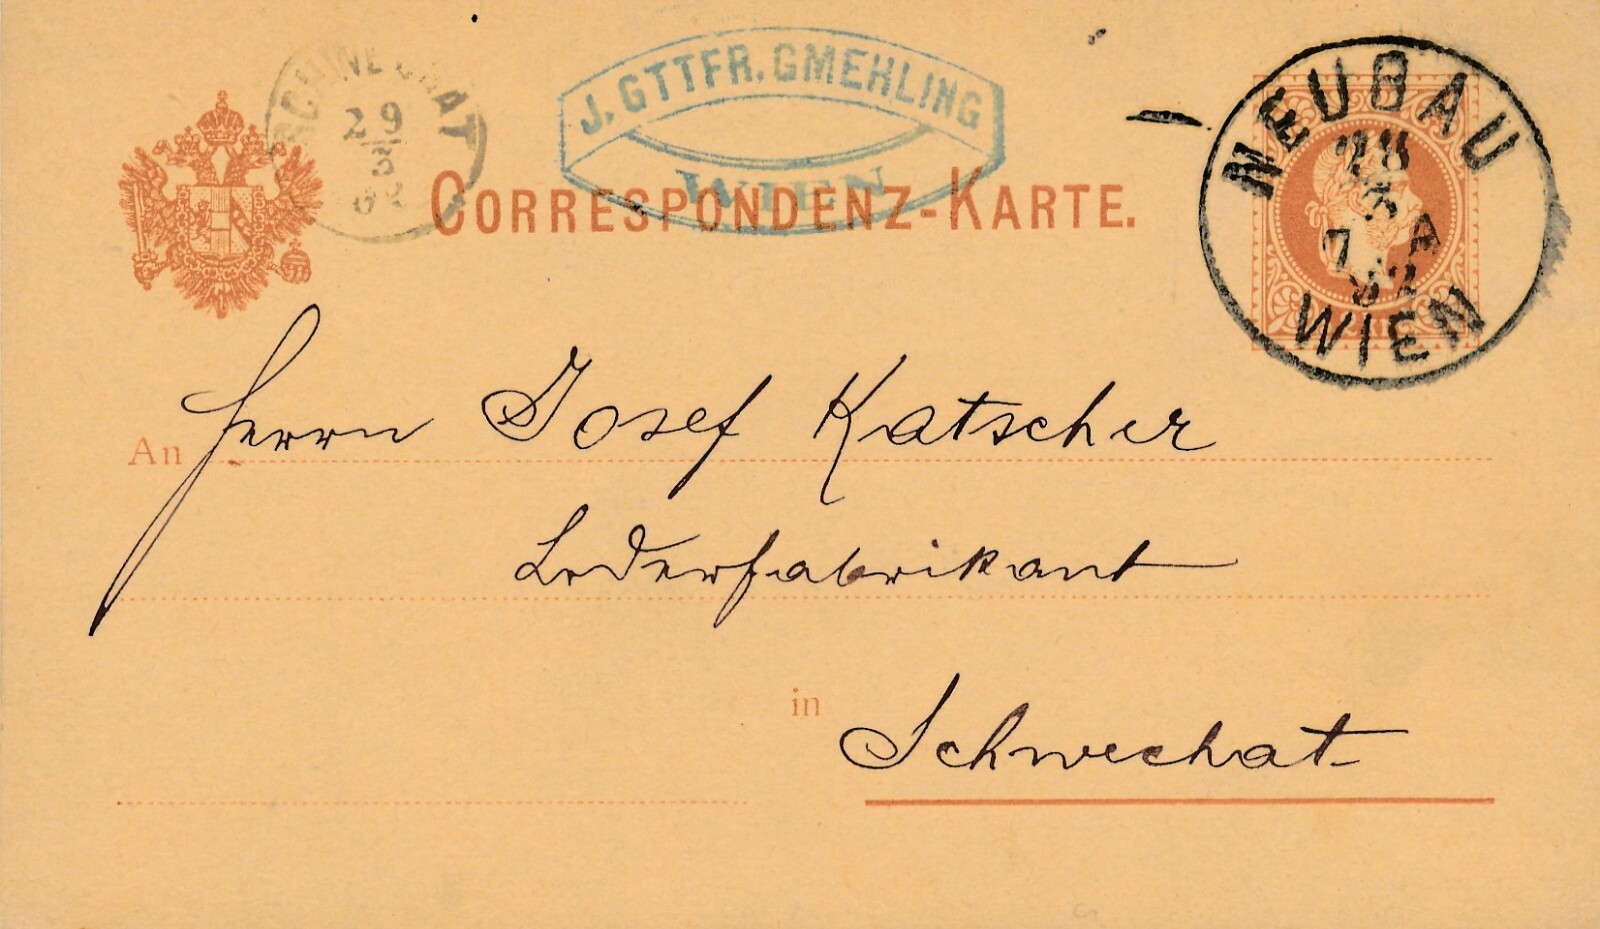 J. GTTFR. GMEHLING
WIEN
SCHWECHAT
29
3
82
CORRESPONDENZ-KARTE.
NEUBAU
28
3
7 A
82
WIEN
2 KR.
An Herrn Josef Katscher
Lederfabrikant
in Schwechat